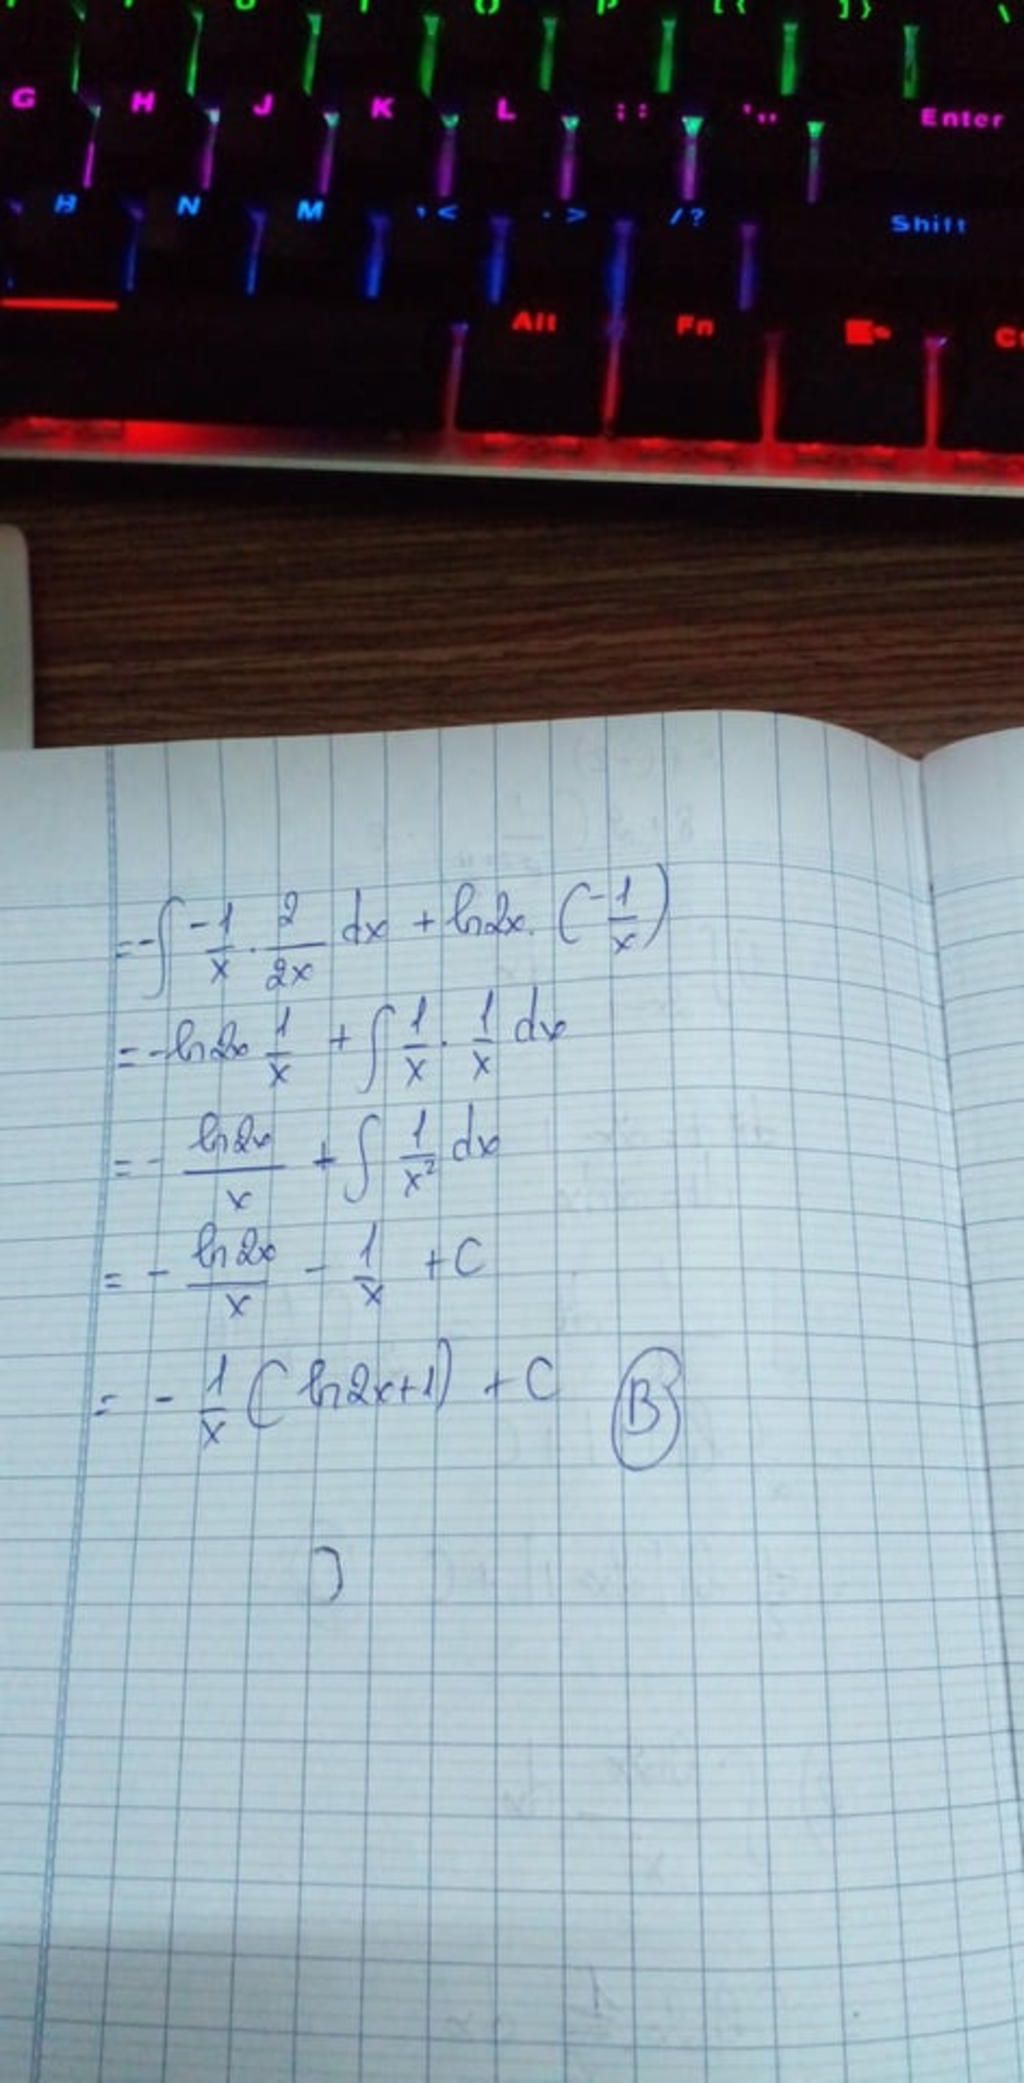 G H J K L ; : ' " Enter
B N M , < . > / ? Shift
Alt Fn
= - ∫ -1/x · 2/2x dx + ln2x. (-1/x)
= - ln2x 1/x + ∫ 1/x · 1/x dx
= - ln2x/x + ∫ 1/x² dx
= - ln2x/x - 1/x + C
= - 1/x (ln2x+1) + C B